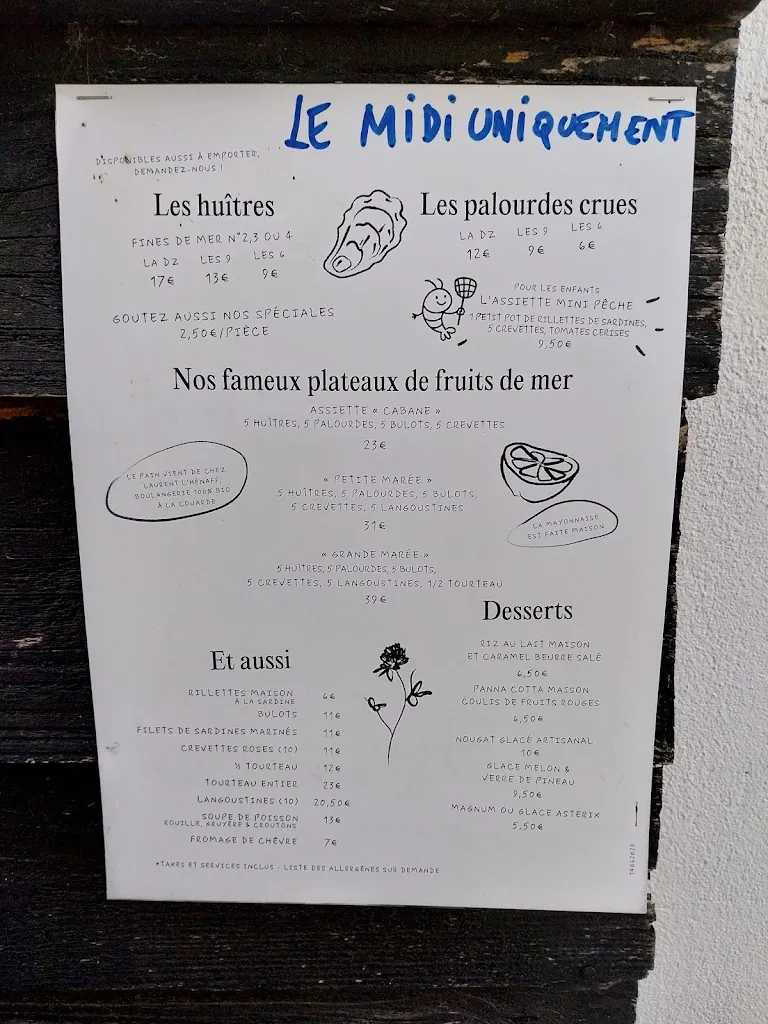 LE MIDI UNIQUEMENT
DISPONIBLES AUSSI À EMPORTER,
DEMANDEZ-NOUS !
Les huîtres
FINES DE MER N°2,3 OU 4
LA DZ LES 9 LES 6
17€ 13€ 9€
GOUTEZ AUSSI NOS SPÉCIALES
2,50€/PIÈCE
Les palourdes crues
LA DZ LES 9 LES 6
12€ 9€ 6€
POUR LES ENFANTS
L'ASSIETTE MINI PÊCHE
1 PETIT POT DE RILLETTES DE SARDINES,
5 CREVETTES, TOMATES CERISES
9,50€
Nos fameux plateaux de fruits de mer
ASSIETTE « CABANE »
5 HUÎTRES, 5 PALOURDES, 5 BULOTS, 5 CREVETTES
23€
LE PAIN VIENT DE CHEZ
LAURENT L'HÉNAFF,
BOULANGERIE 100% BIO
À LA COUARDE
« PETITE MARÉE »
5 HUÎTRES, 5 PALOURDES, 5 BULOTS,
5 CREVETTES, 5 LANGOUSTINES
31€
LA MAYONNAISE
EST FAITE MAISON
« GRANDE MARÉE »
5 HUÎTRES, 5 PALOURDES, 5 BULOTS,
5 CREVETTES, 5 LANGOUSTINES, 1/2 TOURTEAU
39€
Et aussi
RILLETTES MAISON 6€
À LA SARDINE
BULOTS 11€
FILETS DE SARDINES MARINÉS 11€
CREVETTES ROSES (10) 11€
½ TOURTEAU 12€
TOURTEAU ENTIER 23€
LANGOUSTINES (10) 20,50€
SOUPE DE POISSON 13€
ROUILLE, GRUYÈRE & CROUTONS
FROMAGE DE CHÈVRE 7€
Desserts
RIZ AU LAIT MAISON
ET CARAMEL BEURRE SALÉ
6,50€
PANNA COTTA MAISON
COULIS DE FRUITS ROUGES
6,50€
NOUGAT GLACÉ ARTISANAL
10€
GLACE MELON &
VERRE DE PINEAU
9,50€
MAGNUM OU GLACE ASTERIX
5,50€
*TAXES ET SERVICES INCLUS - LISTE DES ALLERGÈNES SUR DEMANDE
14042025